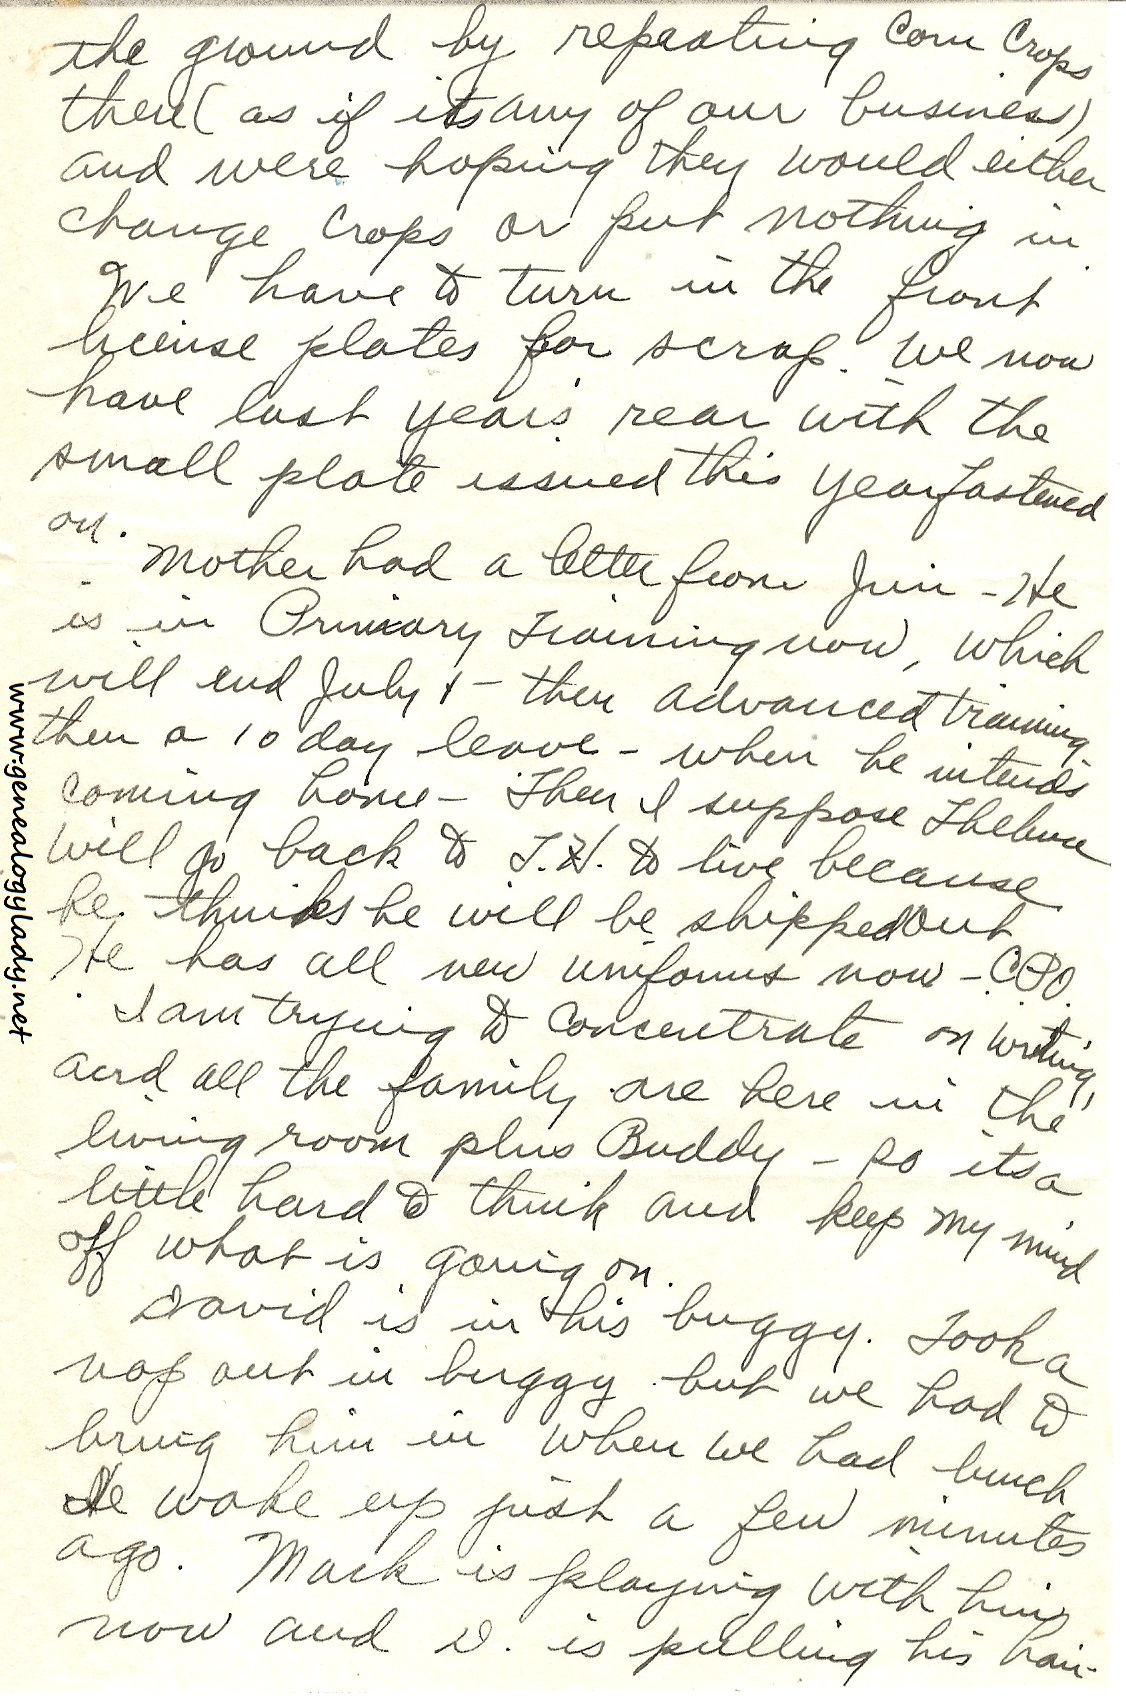 the ground by repeating Corn Crops
there (as if its any of our business)
and were hoping they would either
change Crops or put nothing in
We have to turn in the front
license plates for scrap. We now
have last years rear with the
small plate issued this year fastened
on.
Mother had a letter from Jim - He
is in Primary Training now, which
will end July 1 - then advanced training
then a 10 day leave - when he intends
coming home - Then I suppose Thelma
will go back to T.H. to live because
he thinks he will be shipped out
He has all new uniforms now - CPO.
I am trying to concentrate on writing,
and all the family are here in the
living room plus Buddy - so its a
little hard to think and keep my mind
off what is going on.
David is in his buggy. Took a
nap out in buggy but we had to
bring him in when we had lunch
He woke up just a few minutes
ago. Mark is playing with him
now and D. is pulling his hair.
www.genealogylady.net